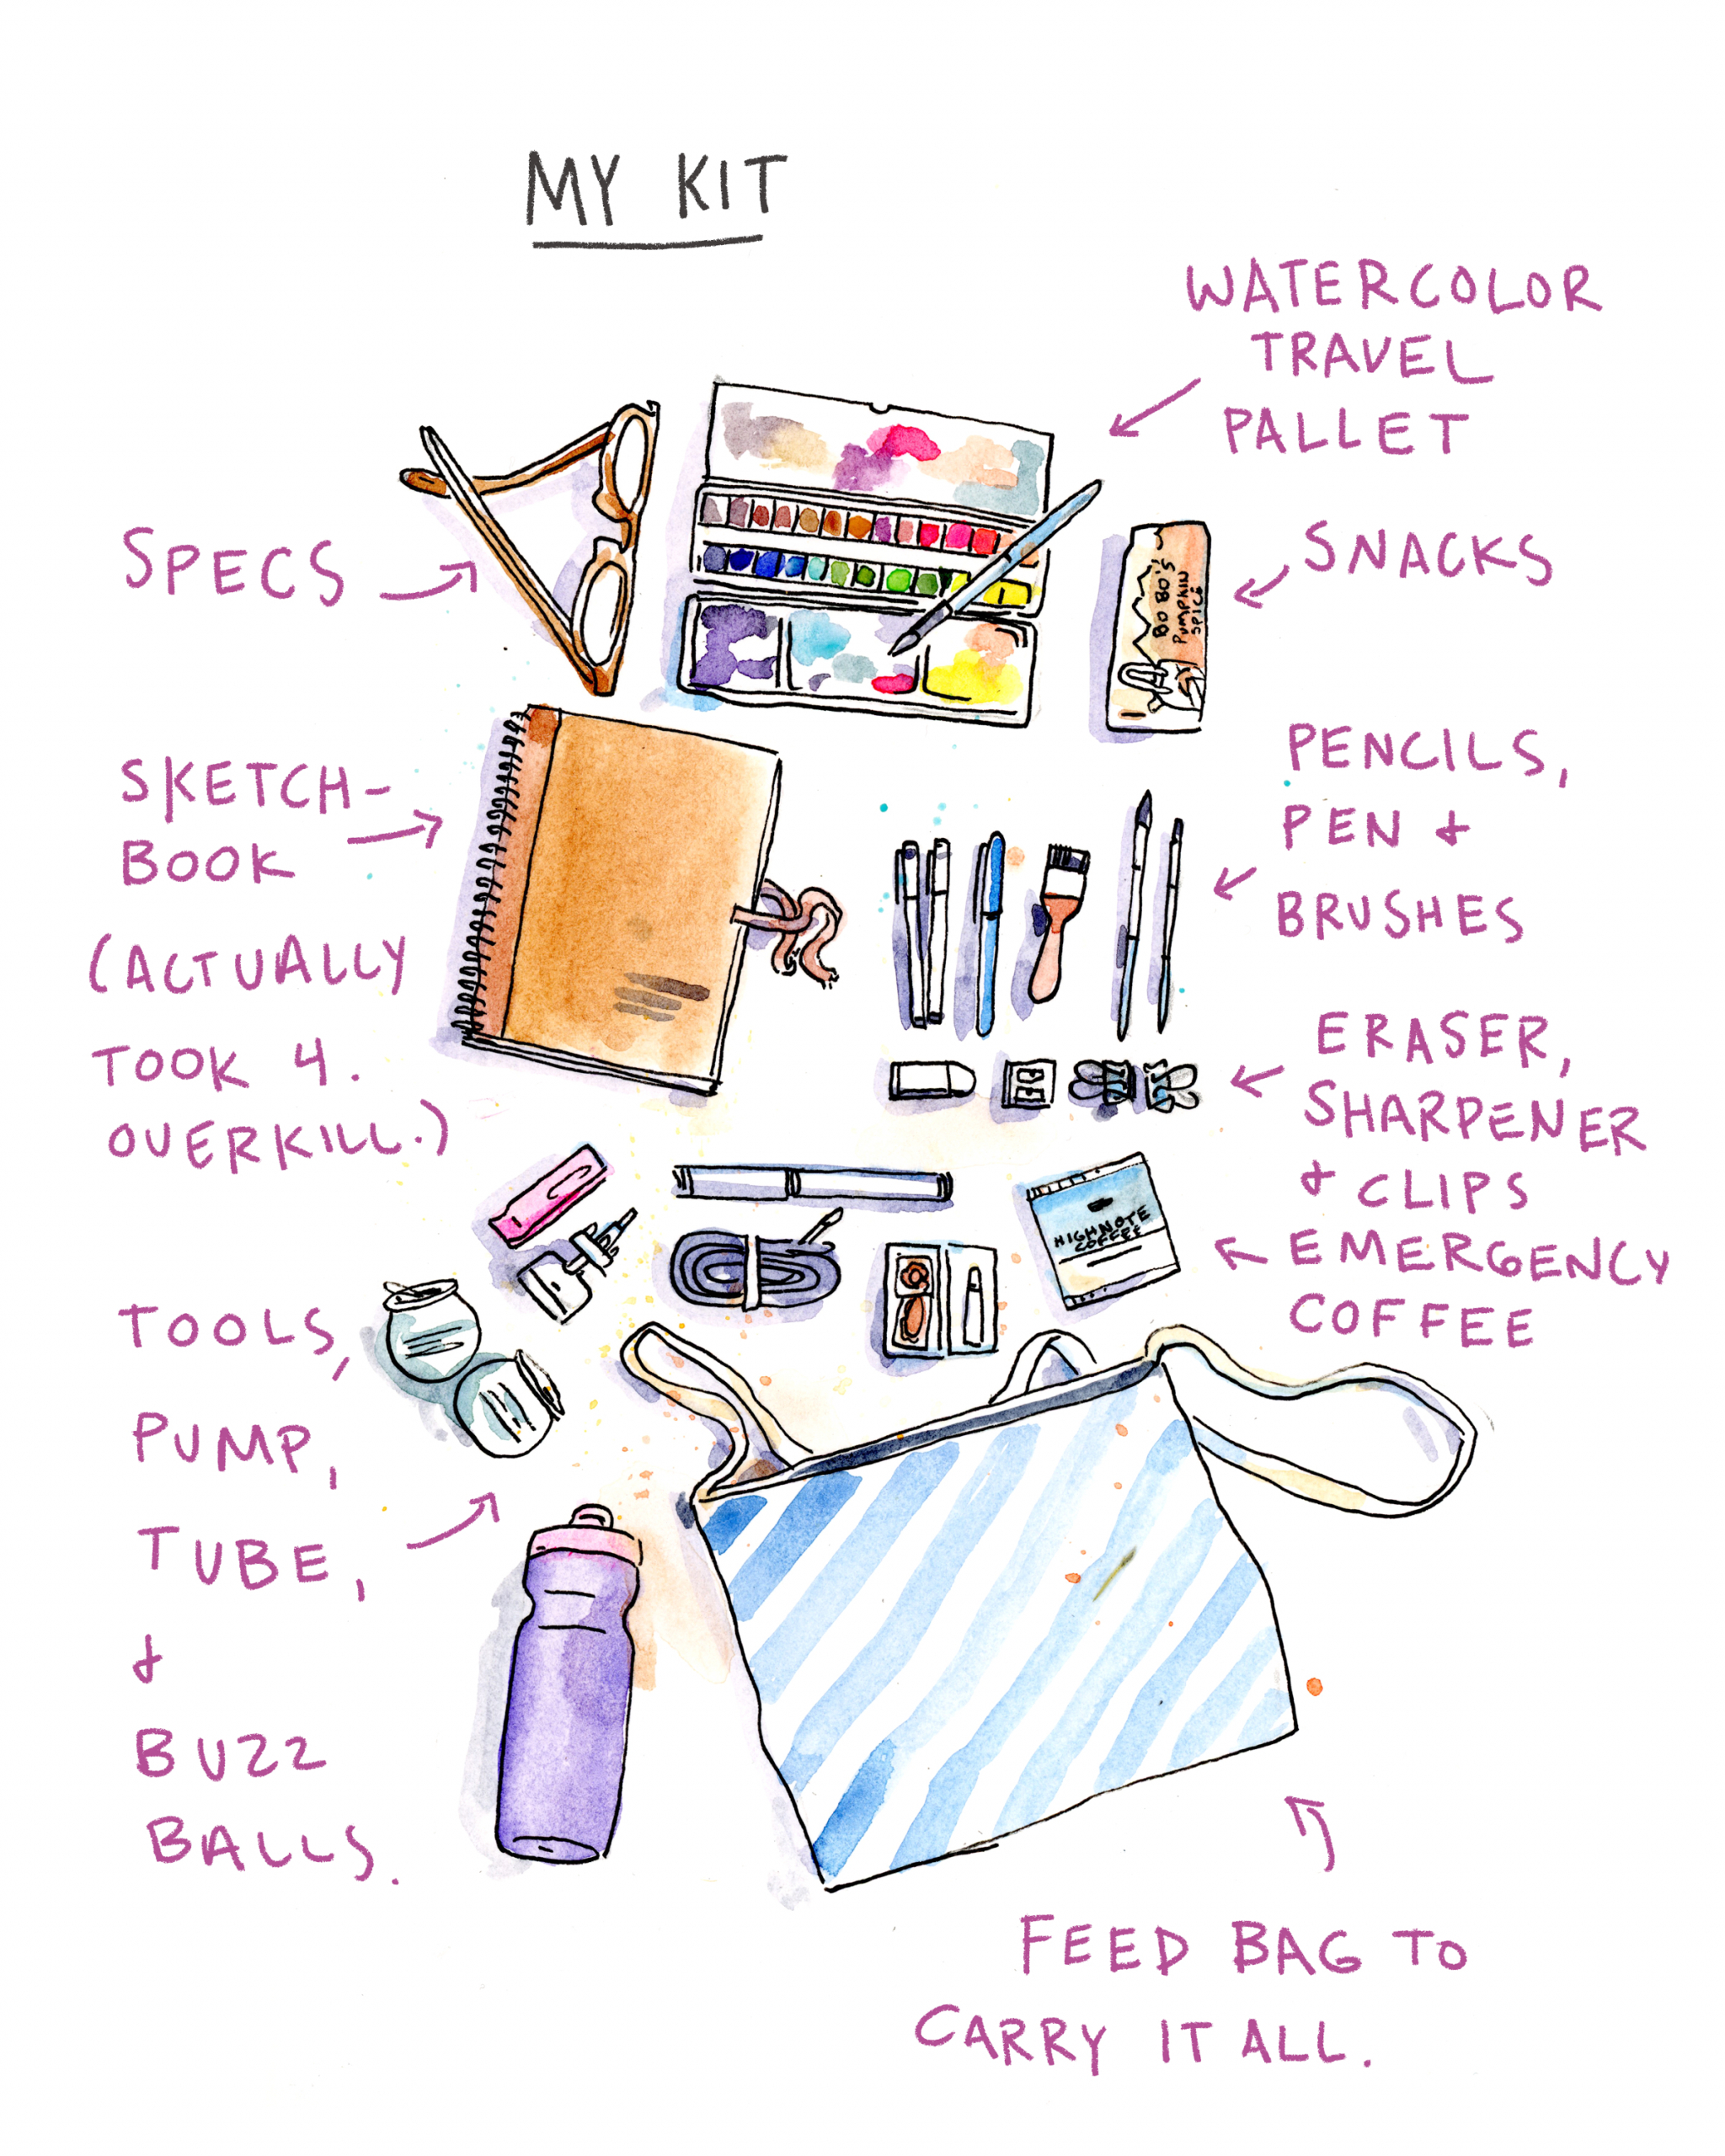 MY KIT
WATERCOLOR
TRAVEL
PALLET
SPECS
SNACKS
BOBO'S
PUMPKIN
SPICE
SKETCH-
BOOK
(ACTUALLY
TOOK 4.
OVERKILL.)
PENCILS,
PEN &
BRUSHES
ERASER,
SHARPENER
& CLIPS
HIGHNOTE
COFFEE
EMERGENCY
COFFEE
TOOLS,
PUMP,
TUBE,
&
BUZZ
BALLS.
FEED BAG TO
CARRY IT ALL.